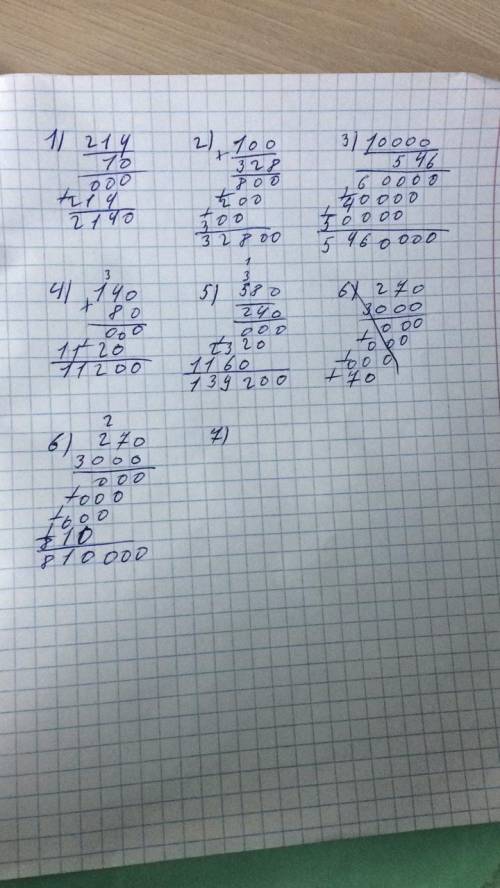 1) 214
10
000
+ 214
2140
2) 100
× 328
800
+ 200
+ 300
32800
3) 10000
546
60000
+ 40000
+ 50000
5460000
3
4) 140
× 80
000
+ 1120
11200
1
3
5) 580
240
000
+ 2320
1160
139200
6) 270
3000
000
+ 000
+ 000
+ 70
2
6) 270
3000
000
+ 000
+ 000
+ 810
810000
7)